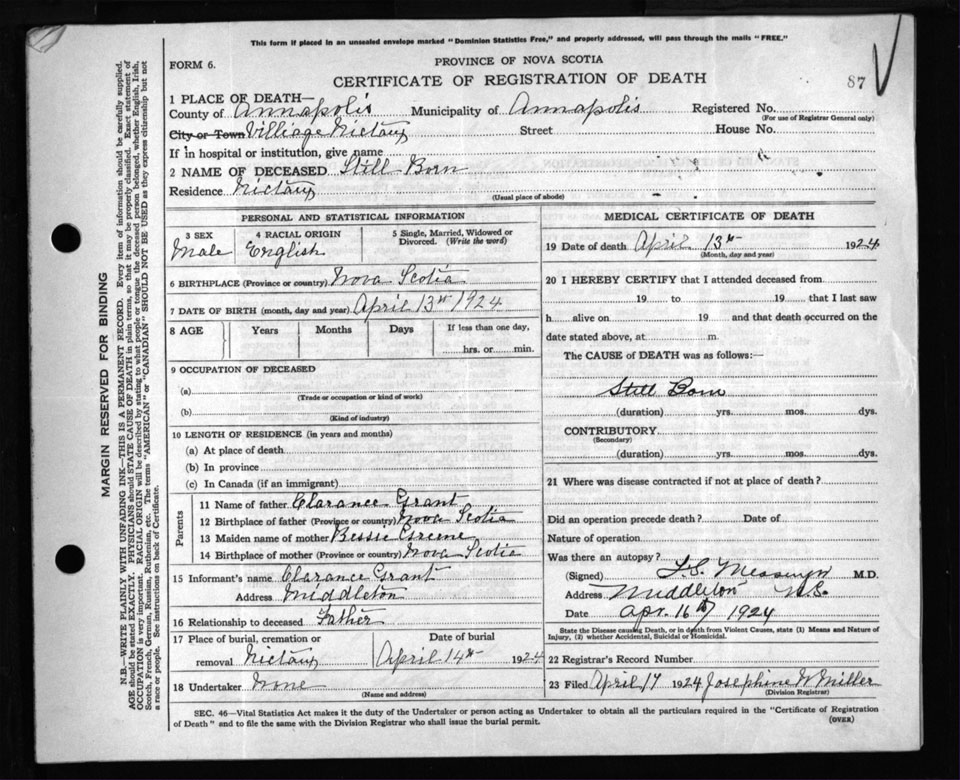 This form if placed in an unsealed envelope marked "Dominion Statistics Free," and properly addressed, will pass through the mails "FREE."
FORM 6.
PROVINCE OF NOVA SCOTIA
CERTIFICATE OF REGISTRATION OF DEATH
87
1 PLACE OF DEATH—
County of Annapolis Municipality of Annapolis Registered No.
(For use of Registrar General only)
City or Town Villiage Nictaux Street House No.
If in hospital or institution, give name
2 NAME OF DECEASED Still Born
Residence Nictaux
(Usual place of abode)
PERSONAL AND STATISTICAL INFORMATION
3 SEX 4 RACIAL ORIGIN 5 Single, Married, Widowed or
Divorced. (Write the word)
Male English
6 BIRTHPLACE (Province or country) Nova Scotia
7 DATE OF BIRTH (month, day and year) April 13th 1924
8 AGE Years Months Days If less than one day,
hrs. or min.
9 OCCUPATION OF DECEASED
(a)
(Trade or occupation or kind of work)
(b)
(Kind of industry)
10 LENGTH OF RESIDENCE (in years and months)
(a) At place of death
(b) In province
(c) In Canada (if an immigrant)
Parents
11 Name of father Clarance Grant
12 Birthplace of father (Province or country) Nova Scotia
13 Maiden name of mother Bessie Greene
14 Birthplace of mother (Province or country) Nova Scotia
15 Informant's name Clarance Grant
Address Middleton
16 Relationship to deceased Father
17 Place of burial, cremation or Date of burial
removal Nictaux April 14th 1924
18 Undertaker None
(Name and address)
MEDICAL CERTIFICATE OF DEATH
19 Date of death April 13th 1924
(Month, day and year)
20 I HEREBY CERTIFY that I attended deceased from
19 to 19 that I last saw
h alive on 19 and that death occurred on the
date stated above, at m.
The CAUSE of DEATH was as follows:—
Still Born
(duration) yrs. mos. dys.
CONTRIBUTORY
(Secondary)
(duration) yrs. mos. dys.
21 Where was disease contracted if not at place of death?
Did an operation precede death? Date of
Nature of operation
Was there an autopsy?
(Signed) M.D.
Address Middleton N.S.
Date Apr. 16th 1924
State the Disease causing Death, or in death from Violent Causes, state (1) Means and Nature of
Injury, (2) whether Accidental, Suicidal or Homicidal.
22 Registrar's Record Number
23 Filed April 17 1924 Josephine W Miller
(Division Registrar)
SEC. 46—Vital Statistics Act makes it the duty of the Undertaker or person acting as Undertaker to obtain all the particulars required in the "Certificate of Registration
of Death" and to file the same with the Division Registrar who shall issue the burial permit. (OVER)
MARGIN RESERVED FOR BINDING
N.B.—WRITE PLAINLY WITH UNFADING INK—THIS IS A PERMANENT RECORD. Every item of information should be carefully supplied.
AGE should be stated EXACTLY. PHYSICIANS should STATE CAUSE OF DEATH in plain terms, so that it may be properly classified. Exact statement of
OCCUPATION is very important. RACIAL ORIGIN will be described by stating to what people or tongue the deceased person belonged, whether English, Irish,
Scotch, French, German, Russian, Ruthenian, etc. The terms "AMERICAN" or "CANADIAN" SHOULD NOT BE USED as they express citizenship but not
a race or people. See instructions on back of Certificate.